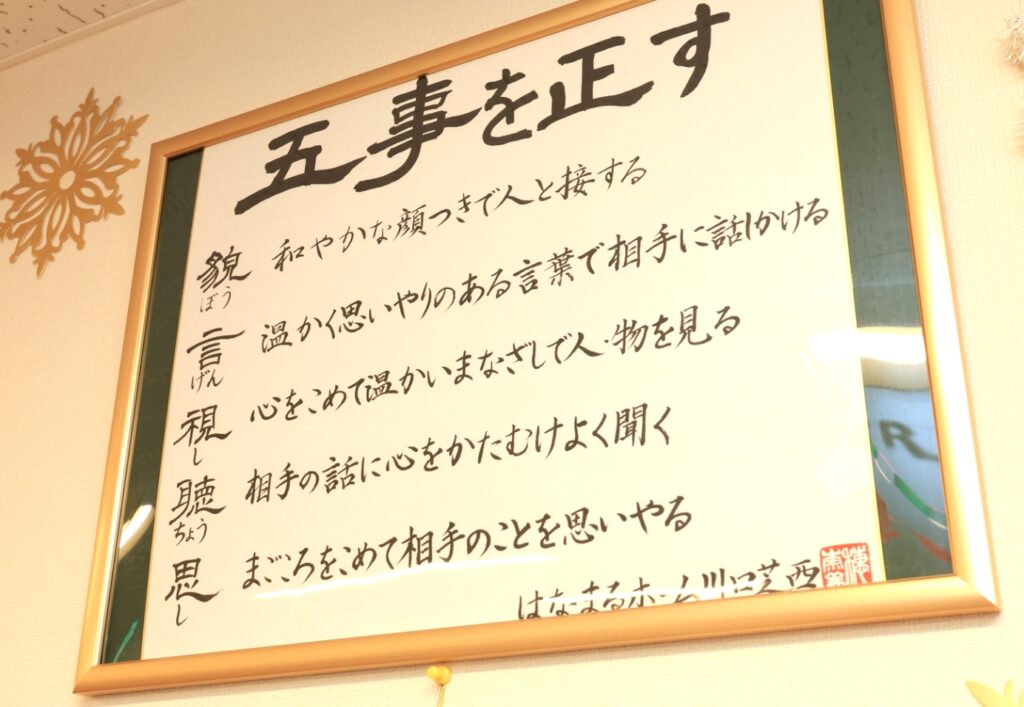 五事を正す
貌 和やかな顔つきで人と接する
ぼう
言 温かく思いやりのある言葉で相手に話しかける
げん
視 心をこめて温かいまなざしで人・物を見る
し
聴 相手の話に心をかたむけよく聞く
ちょう
思 まごころをこめて相手のことを思いやる
し
はなまるホーム川口芝西
R